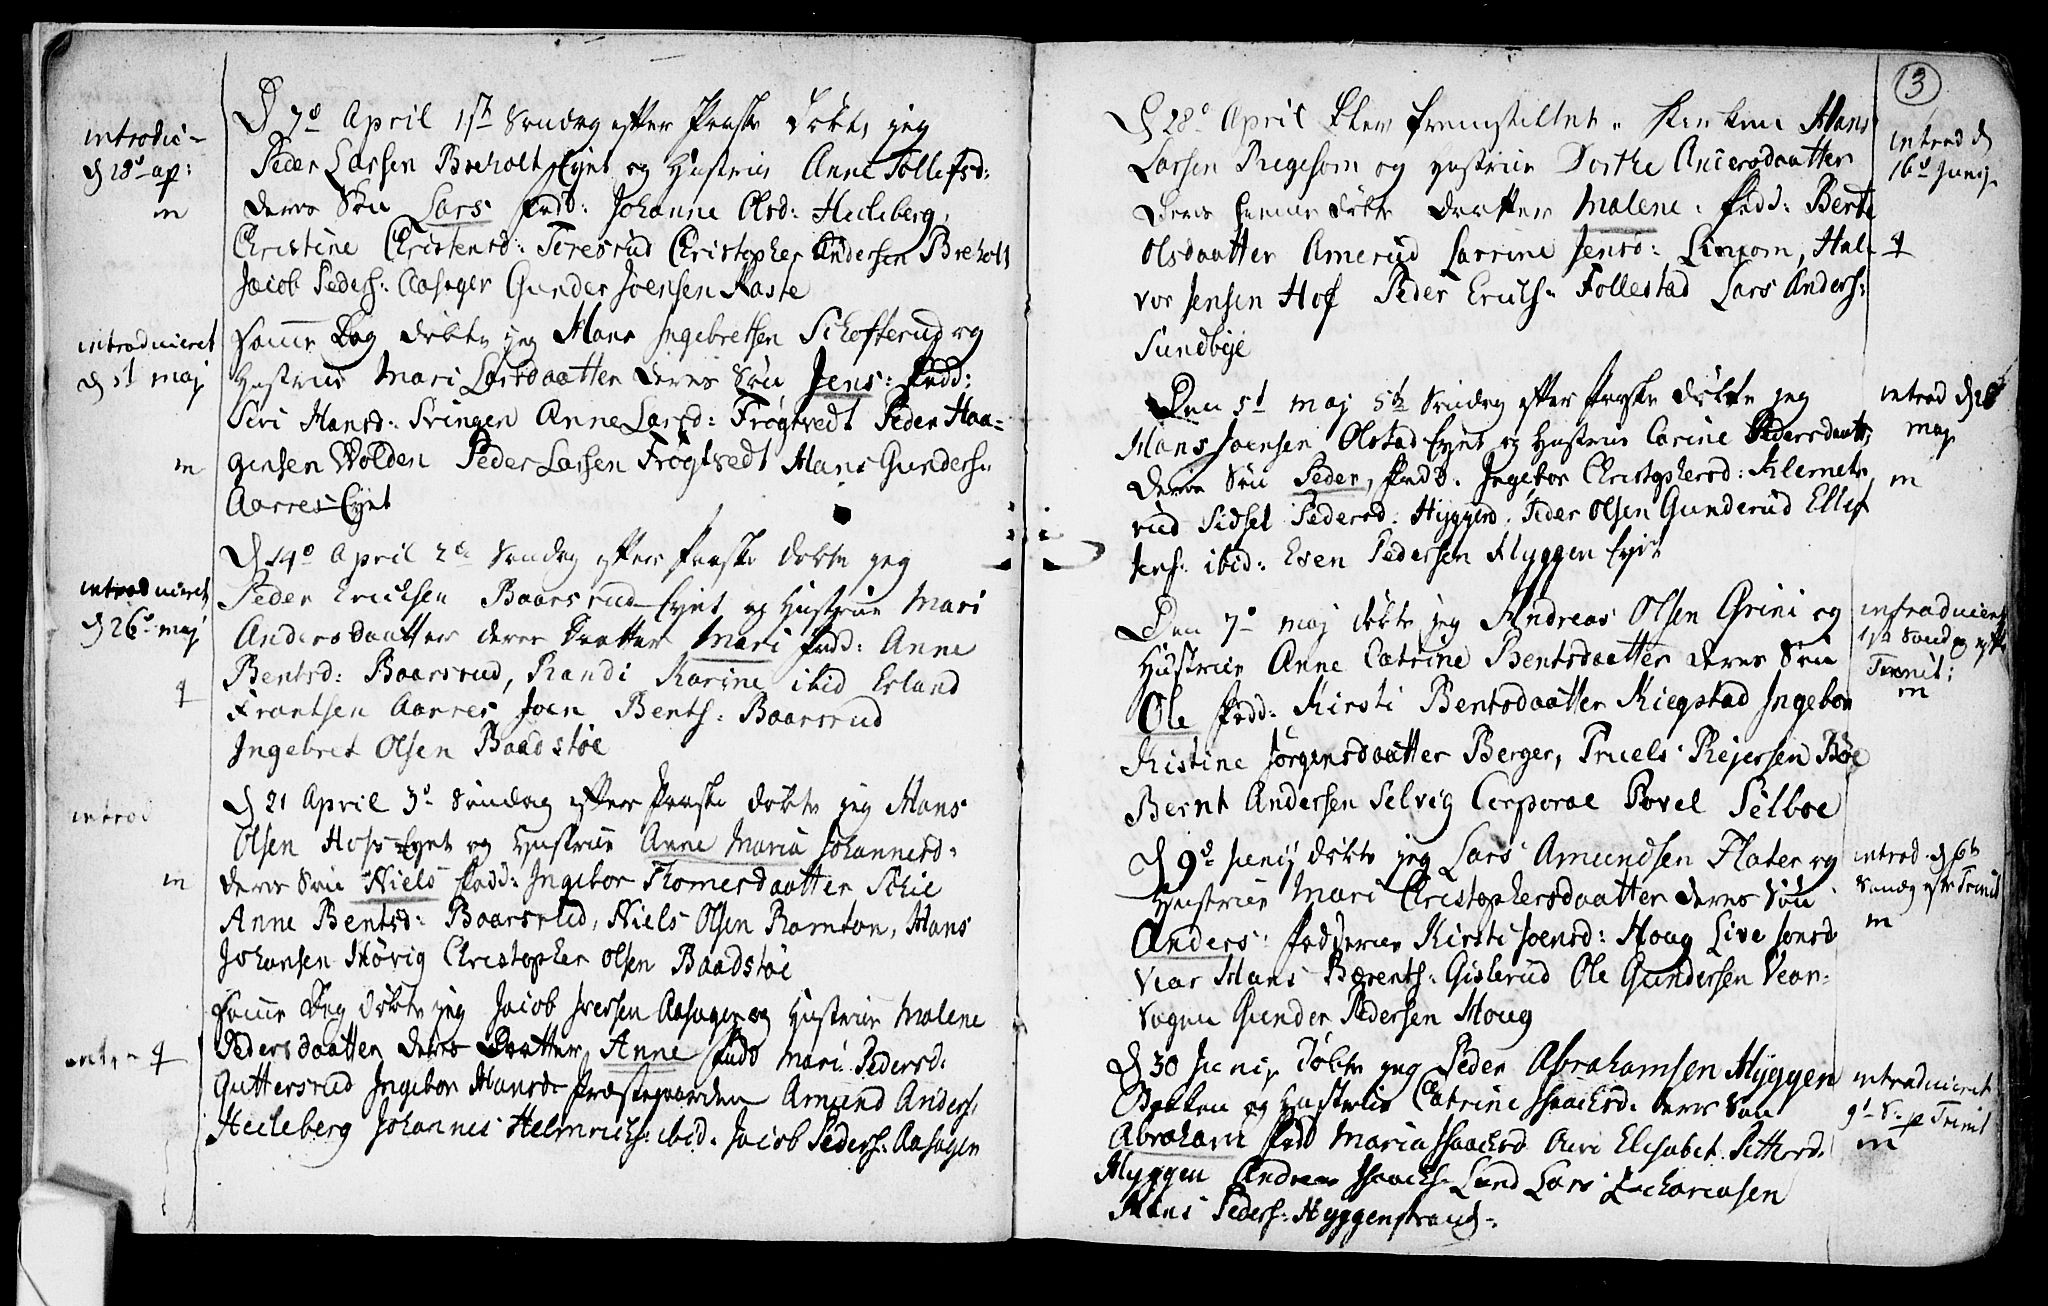 introdu-
d 28de ap:
m
D 7de April 1ste Søndag efter Paaske døbte jeg
Peder Larsen Breholt Eyet og Hustrue Anne Tollefsd:
deres Søn Lars Fadd: Johanne Olsd: Heeleberg,
Christine Christensd: Teresrud Christopher Andersen Breholt
Jacob Peders: Aasager Gunder Joensen Raste
introduceret
d 5t maj
m
Samme Dag døbte jeg Hans Ingebretsen Schofterud og
Hustrue Mari Larsdaatter deres Søn Jens: Fadd:
Siri Hansd: Tvingen Anne Larsd: Frøgtvedt Peder Haa=
gensen Wolden Peder Larsen Frøgtvedt Hans Gunders:
Aarres Eyet
introduceret
d 26de maj
q
D 14de April 2den Søndag efter Paaske døbte jeg
Peder Ericksen Baarsrud Eyet og Hustrue Mari
Andersdaatter deres Daatter Mari Fadd: Anne
Bentsd: Baarsrud, Randi Karine ibid Erland
Frantsen Aarres Joen Bents: Baarsrud
Ingebret Olsen Baadstøe
introd
m
D 21 April 3de Søndag efter Paaske døbte jeg Hans
Olsen Hofs Eyet og Hustrue Anne Maria Johannesd:
deres Søn Niels Fadd: Ingebor Thomesdaatter Schie
Anne Bentsd: Baarsrud, Niels Olsen Ramton, Hans
Johansen Kiørig Christopher Olsen Baadstøe
intr- q
Samme Dag døbte jeg Jacob Iversen Aasager og Hustrue Malene
Pedersdaatter deres Daatter Anne Fadd Mari Pedersd:
Guttersrud Ingebor Hansd: Præstegaarden Amund Anders:
Heeleberg Johannes Helmrichs: ibid. Jacob Peders: Aasagen
3
D 28de April blev fremstillet i Kirken Hans
Larsen Regesom og Hustrue Dorthe Andersdaatter
Deres hiemme døbte Daatter Malene. Fadd: Berte
Olsdaatter Amerud Larrine Jensd: Linnom, Hal-
vor Jensen Hof Peder Erichs: Follestad Lars Anders:
Sundbye
introd d
16de Junij
q
Den 5t maj 5te Søndag efter Paaske døbte jeg
Hans Joensen Olstad Eyet og Hustrue Carine Pedersdaatt:
deres Søn Peder, Fadd. Ingebor Christophersd: Klemets
rud Sidsel Pedersd: Hyggen. Peder Olsen Gunderud Ellef
Jens: ibid: Even Pedersen Hyggen Eyet
introd d 28
maj
m
Den 7de maj døbte jeg Andreas Olsen Grini og
Hustrue Anne Catrine Bentsdaatter deres Søn
Ole Fadd: Kirsti Bentsdaatter Kiegstad Ingebor
Kistine Jørgensdaatter Berger, Truels Rejersen Bøe
Bernt Andersen Selvig Corporal Povel Selboe
introduceret
1ste Søndag efter
Trenit:
m
D 9de Junij døbte jeg Lars Amundsen Flater og
Hustrue Mari Christophersdaatter deres Søn
Anders: Fadderne Kirsti Joensd: Houg Live Jonsd
Vear Hans Bærents: Gislerud Ole Gundersen Vear-
Gunder Pedersen Houg
introd d 6te
Søndag efter Trinit
m
D 30 Junij døbte jeg Peder Abrahamsen Hyggen
Bakken og Hustrue Catrine Isaachsd. deres Søn
Abraham Fadd Maria Isaachsd Elisabet Pettersd.
Hyggen Andreas Isaachs: Lund Lars Zachariasen
Peders: Hyggenstrand.
introduceret
9de S. p Trinit
m